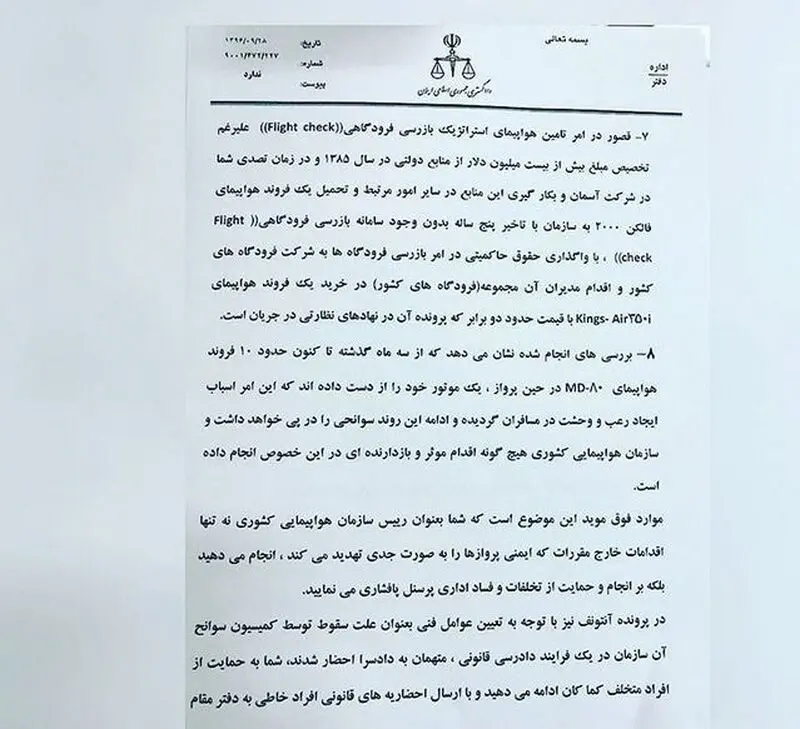 بسمه تعالی
اداره
دفتر
دادگستری جمهوری اسلامی ایران
تاریخ: ۱۳۹۶/۰۹/۲۸
شماره: ۹۰۰۱/۴۷۲/۲۲۷
پیوست: ندارد
۷- قصور در امر تامین هواپیمای استراتژیک بازرسی فرودگاهی((Flight check)) علیرغم
تخصیص مبلغ بیش از بیست میلیون دلار از منابع دولتی در سال ۱۳۸۵ و در زمان تصدی شما
در شرکت آسمان و بکار گیری این منابع در سایر امور مرتبط و تحمیل یک فروند هواپیمای
فالکن ۲۰۰۰ به سازمان با تاخیر پنج ساله بدون وجود سامانه بازرسی فرودگاهی(( Flight
check)) ، با واگذاری حقوق حاکمیتی در امر بازرسی فرودگاه ها به شرکت فرودگاه های
کشور و اقدام مدیران آن مجموعه(فرودگاه های کشور) در خرید یک فروند هواپیمای
Kings- Air۳۵۰i با قیمت حدود دو برابر که پرونده آن در نهادهای نظارتی در جریان است.
۸- بررسی های انجام شده نشان می دهد که از سه ماه گذشته تا کنون حدود ۱۰ فروند
هواپیمای MD-۸۰ در حین پرواز ، یک موتور خود را از دست داده اند که این امر اسباب
ایجاد رعب و وحشت در مسافران گردیده و ادامه این روند سوانحی را در پی خواهد داشت و
سازمان هواپیمایی کشوری هیچ گونه اقدام موثر و بازدارنده ای در این خصوص انجام داده
است.
موارد فوق موید این موضوع است که شما بعنوان رییس سازمان هواپیمایی کشوری نه تنها
اقدامات خارج مقررات که ایمنی پروازها را به صورت جدی تهدید می کند ، انجام می دهید
بلکه بر انجام و حمایت از تخلفات و فساد اداری پرسنل پافشاری می نمایید.
در پرونده آنتونف نیز با توجه به تعیین عوامل فنی بعنوان علت سقوط توسط کمیسیون سوانح
آن سازمان در یک فرایند دادرسی قانونی ، متهمان به دادسرا احضار شدند، شما به حمایت از
افراد متخلف کما کان ادامه می دهید و با ارسال احضاریه های قانونی افراد خاطی به دفتر مقام